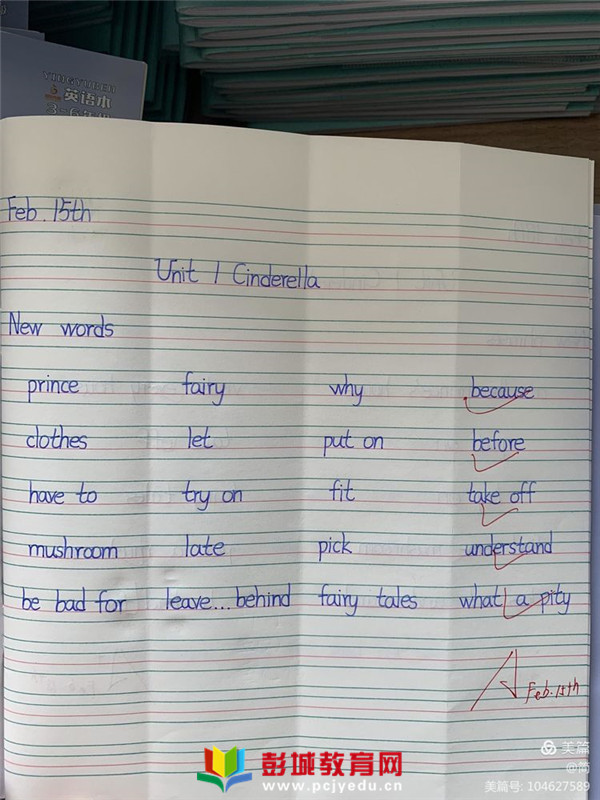 YINGYUBEN
英语本
3-6年级
Feb. 15th
Unit 1 Cinderella
New words
prince fairy why because
clothes let put on before
have to try on fit take off
mushroom late pick understand
be bad for leave...behind fairy tales what a pity
A Feb. 15th
美篇
@简
美篇号: 104627589
彭城教育网
www.pcjyedu.cn